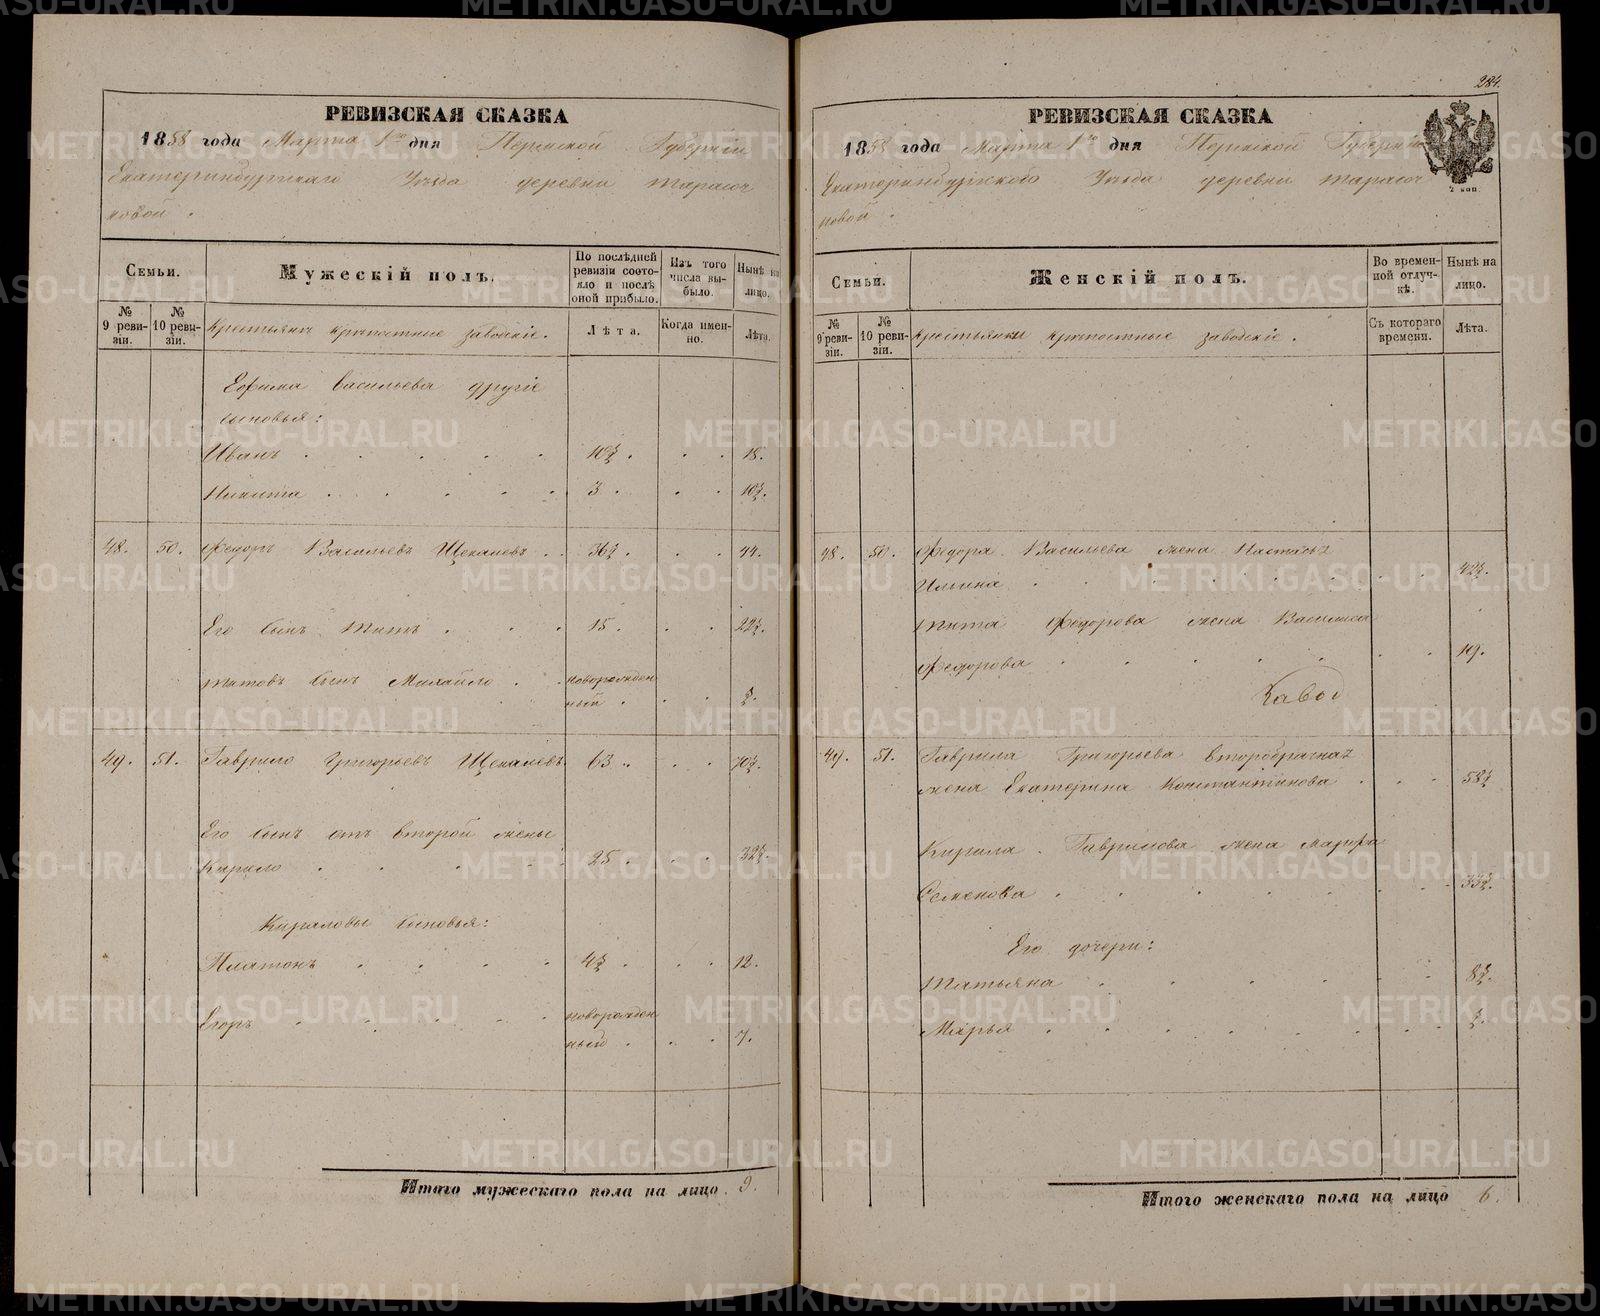 284.
РЕВИЗСКАЯ СКАЗКА
1858 года Марта 1го дня Пермской Губернии
Екатеринбургскаго Уѣзда деревни Тарасо
ковой.
Семьи.
Мужескій полъ.
По послѣдней ревизіи состояло и послѣ оной прибыло.
Изъ того числа выбыло.
Нынѣ на лицо.
№ 9 ревизіи.
№ 10 ревизіи.
Крестьяне крѣпостные заводскіе.
Лѣта.
Когда именно.
Лѣта.
Ефима Васильева другіе
сыновья:
Иванъ 10½. 18.
Никита 3. 10½.
48. 50. Федоръ Васильевъ Щекалевъ 36½. 44.
Его сынъ Титъ 15. 22½.
Титовъ сынъ Михайло новорожден
ный ½.
49. 51. Гаврило Григорьевъ Щекалевъ 63. 70½.
Его сынъ отъ второй жены
Кирило 25. 32½.
Кириловы сыновья:
Платонъ 4½. 12.
Егоръ новорожден
ный 7.
Итого мужескаго пола на лицо 9.
РЕВИЗСКАЯ СКАЗКА
1858 года Марта 1го дня Пермской Губерніи
Екатеринбургскаго Уѣзда деревни Тарасо
ковой.
2 коп.
Семьи.
Женскій полъ.
Во временной отлучкѣ.
Нынѣ на лицо.
№ 9 ревизіи.
№ 10 ревизіи.
Крестьянки крѣпостные заводскіе.
Съ котораго времени.
Лѣта.
48. 50. Федора Васильева жена Настасья
Ильина 42½.
Тита Федорова жена Василиса
Федорова 19.
49. 51. Гаврила Григорьева второбрачная
жена Екатерина Константинова 58½
Кирила Гаврилова жена Марфа
Семенова 33½.
Его дочери:
Татьяна 8½.
Марья ½.
Итого женскаго пола на лицо 6.
METRIKI.GASO-URAL.RU